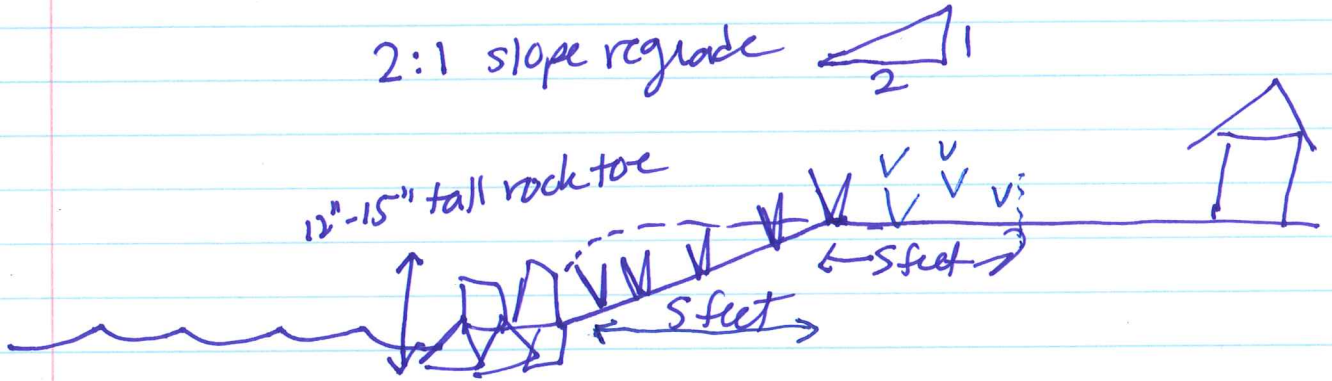 2:1 slope regrade
1
2
12"-15" tall rock toe
5 feet
5 feet